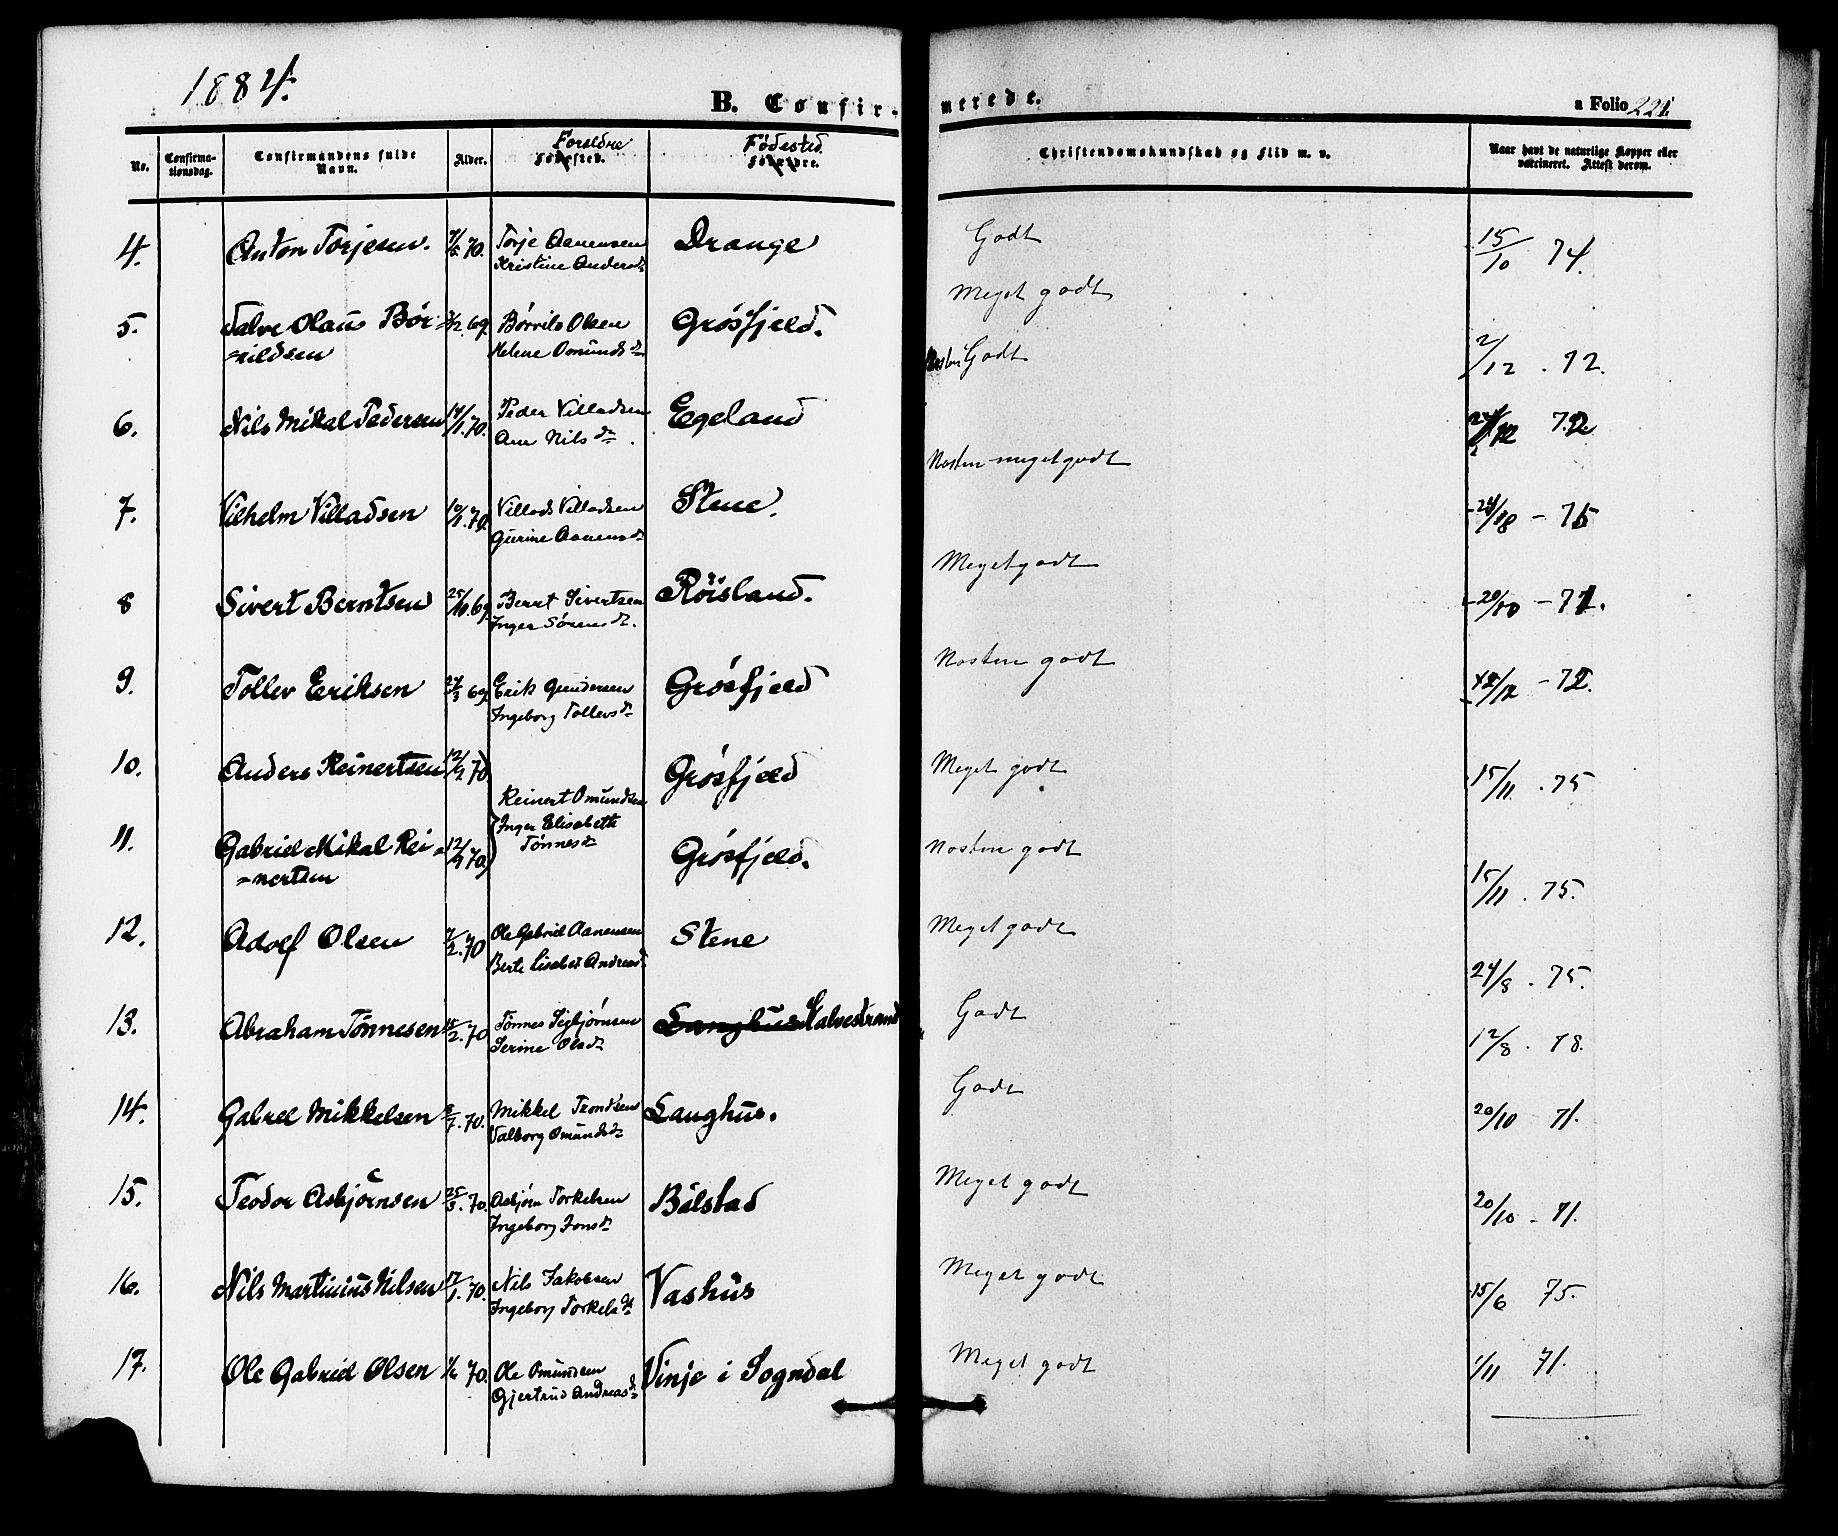 1884.
B. Confir-
merede.
a Folio 221.
No.
Confirma-
tionsdag.
Confirmandens fulde
Navn.
Alder.
Forældre
Fødested.
Fødested.
Forældre.
Christendomskundskab og Flid m. v.
Naar havt de naturlige Kopper eller
vaccineret. Attest derom.
4. Anton Torjesen. 70. Torje Aanensen Drange Godt 15/10 74.
Kristine Andersd.
5. Salve Olaus Bør= 2/12 69. Børrild Olsen Grøsfjeld. Meget godt 2/12 . 72.
=rildsen Helene Omundsd.
6. Nils Mikal Pedersen 14/1. 70. Peder Villadsen Egeland Næsten Godt 72
Ane Nilsd.
7. Vilhelm Villadsen 10/1. 70. Villads Villadsen Stene. Næsten meget godt 24/8 - 75
Gurine Aanensd.
8 Sivert Berntsen 25/10 69. Bernt Sivertsen Røisland. Meget godt 20/10 - 71.
Inger Sørensd.
9. Tollev Eriksen 24/3 69. Erik Gundersen Grøsfjeld Næsten godt 12/12 - 72.
Ingeborg Tollevsd.
10. Anders Reinertsen 12/9 70 Grøsfjeld Meget godt 15/11 . 75
Reinert Omundsen
Inger Elisabeth
Tønnesd.
11. Gabriel Mikal Rei= 12/9 70. Grøsfjeld. Næsten godt 15/11 . 75.
=nertsen
12. Adolf Olsen 7/2. 70 Ole Gabriel Aanensen Stene Meget godt 24/8 . 75.
Berte Lisabet Andreasd.
13. Abraham Tønnesen 15/2. 70 Tønnes Sigbjørnsen Langhus Kalvestrand Godt 12/8 . 78.
Serine Olsd.
14. Gabrel Mikkelsen 2/7. 70. Mikkel Trondsen Langhus. Godt 20/10 71.
Valborg Omundsd.
15. Teodor Asbjørnsen 25/3. 70. Asbjørn Torkelsen Bålstad Meget godt 20/10 - 71.
Ingeborg Jonsd.
16. Nils Martinius Nilsen 17/1. 70. Nils Jakobsen Vashus Meget godt 15/6 75.
Ingeborg Torkelsd.
17. Ole Gabriel Olsen 1/6 70. Ole Omundsen Vinje i Sogndal Meget godt 1/11 71.
Gjertrud Andreasd.